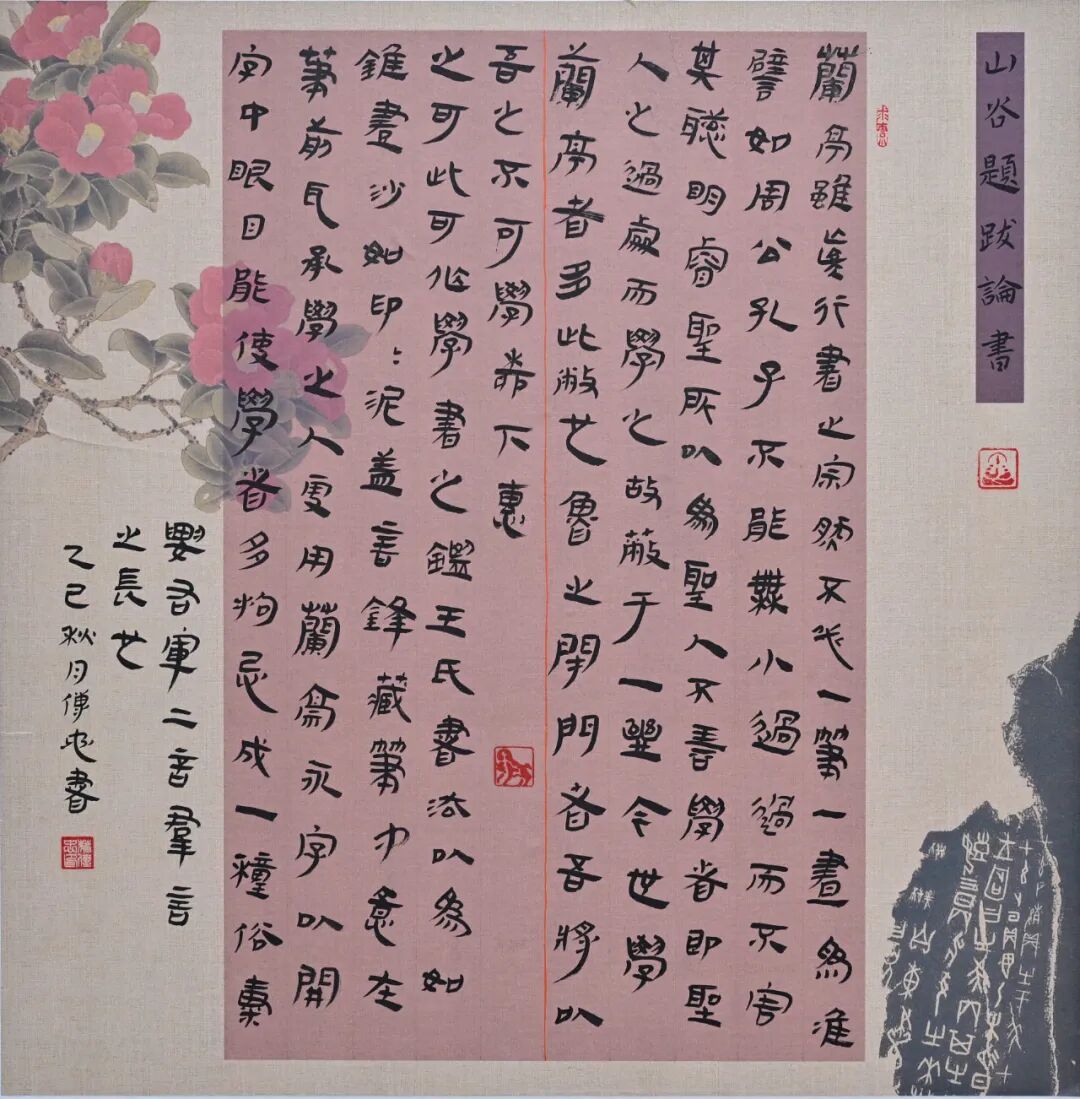 山谷題跋論書
蘭亭雖真行書之宗然不必一筆一畫為准
譬如周公孔子不能無小過過而不害
其聰明睿聖所以為聖人不善學者即聖
人之過處而學之故蔽于一曲今世學
蘭亭者多此蔽也魯之閉門者吾將以
吾之不可學柳下惠
之可此可作學書之鑑王氏書法以為如
錐畫沙如印〻泥蓋言鋒藏筆中意在
筆前耳承學之人更用蘭亭永字以開
字中眼目能使學者多拘忌成一種俗氣
要右軍二言羣言
之長也
乙巳秋月傅書